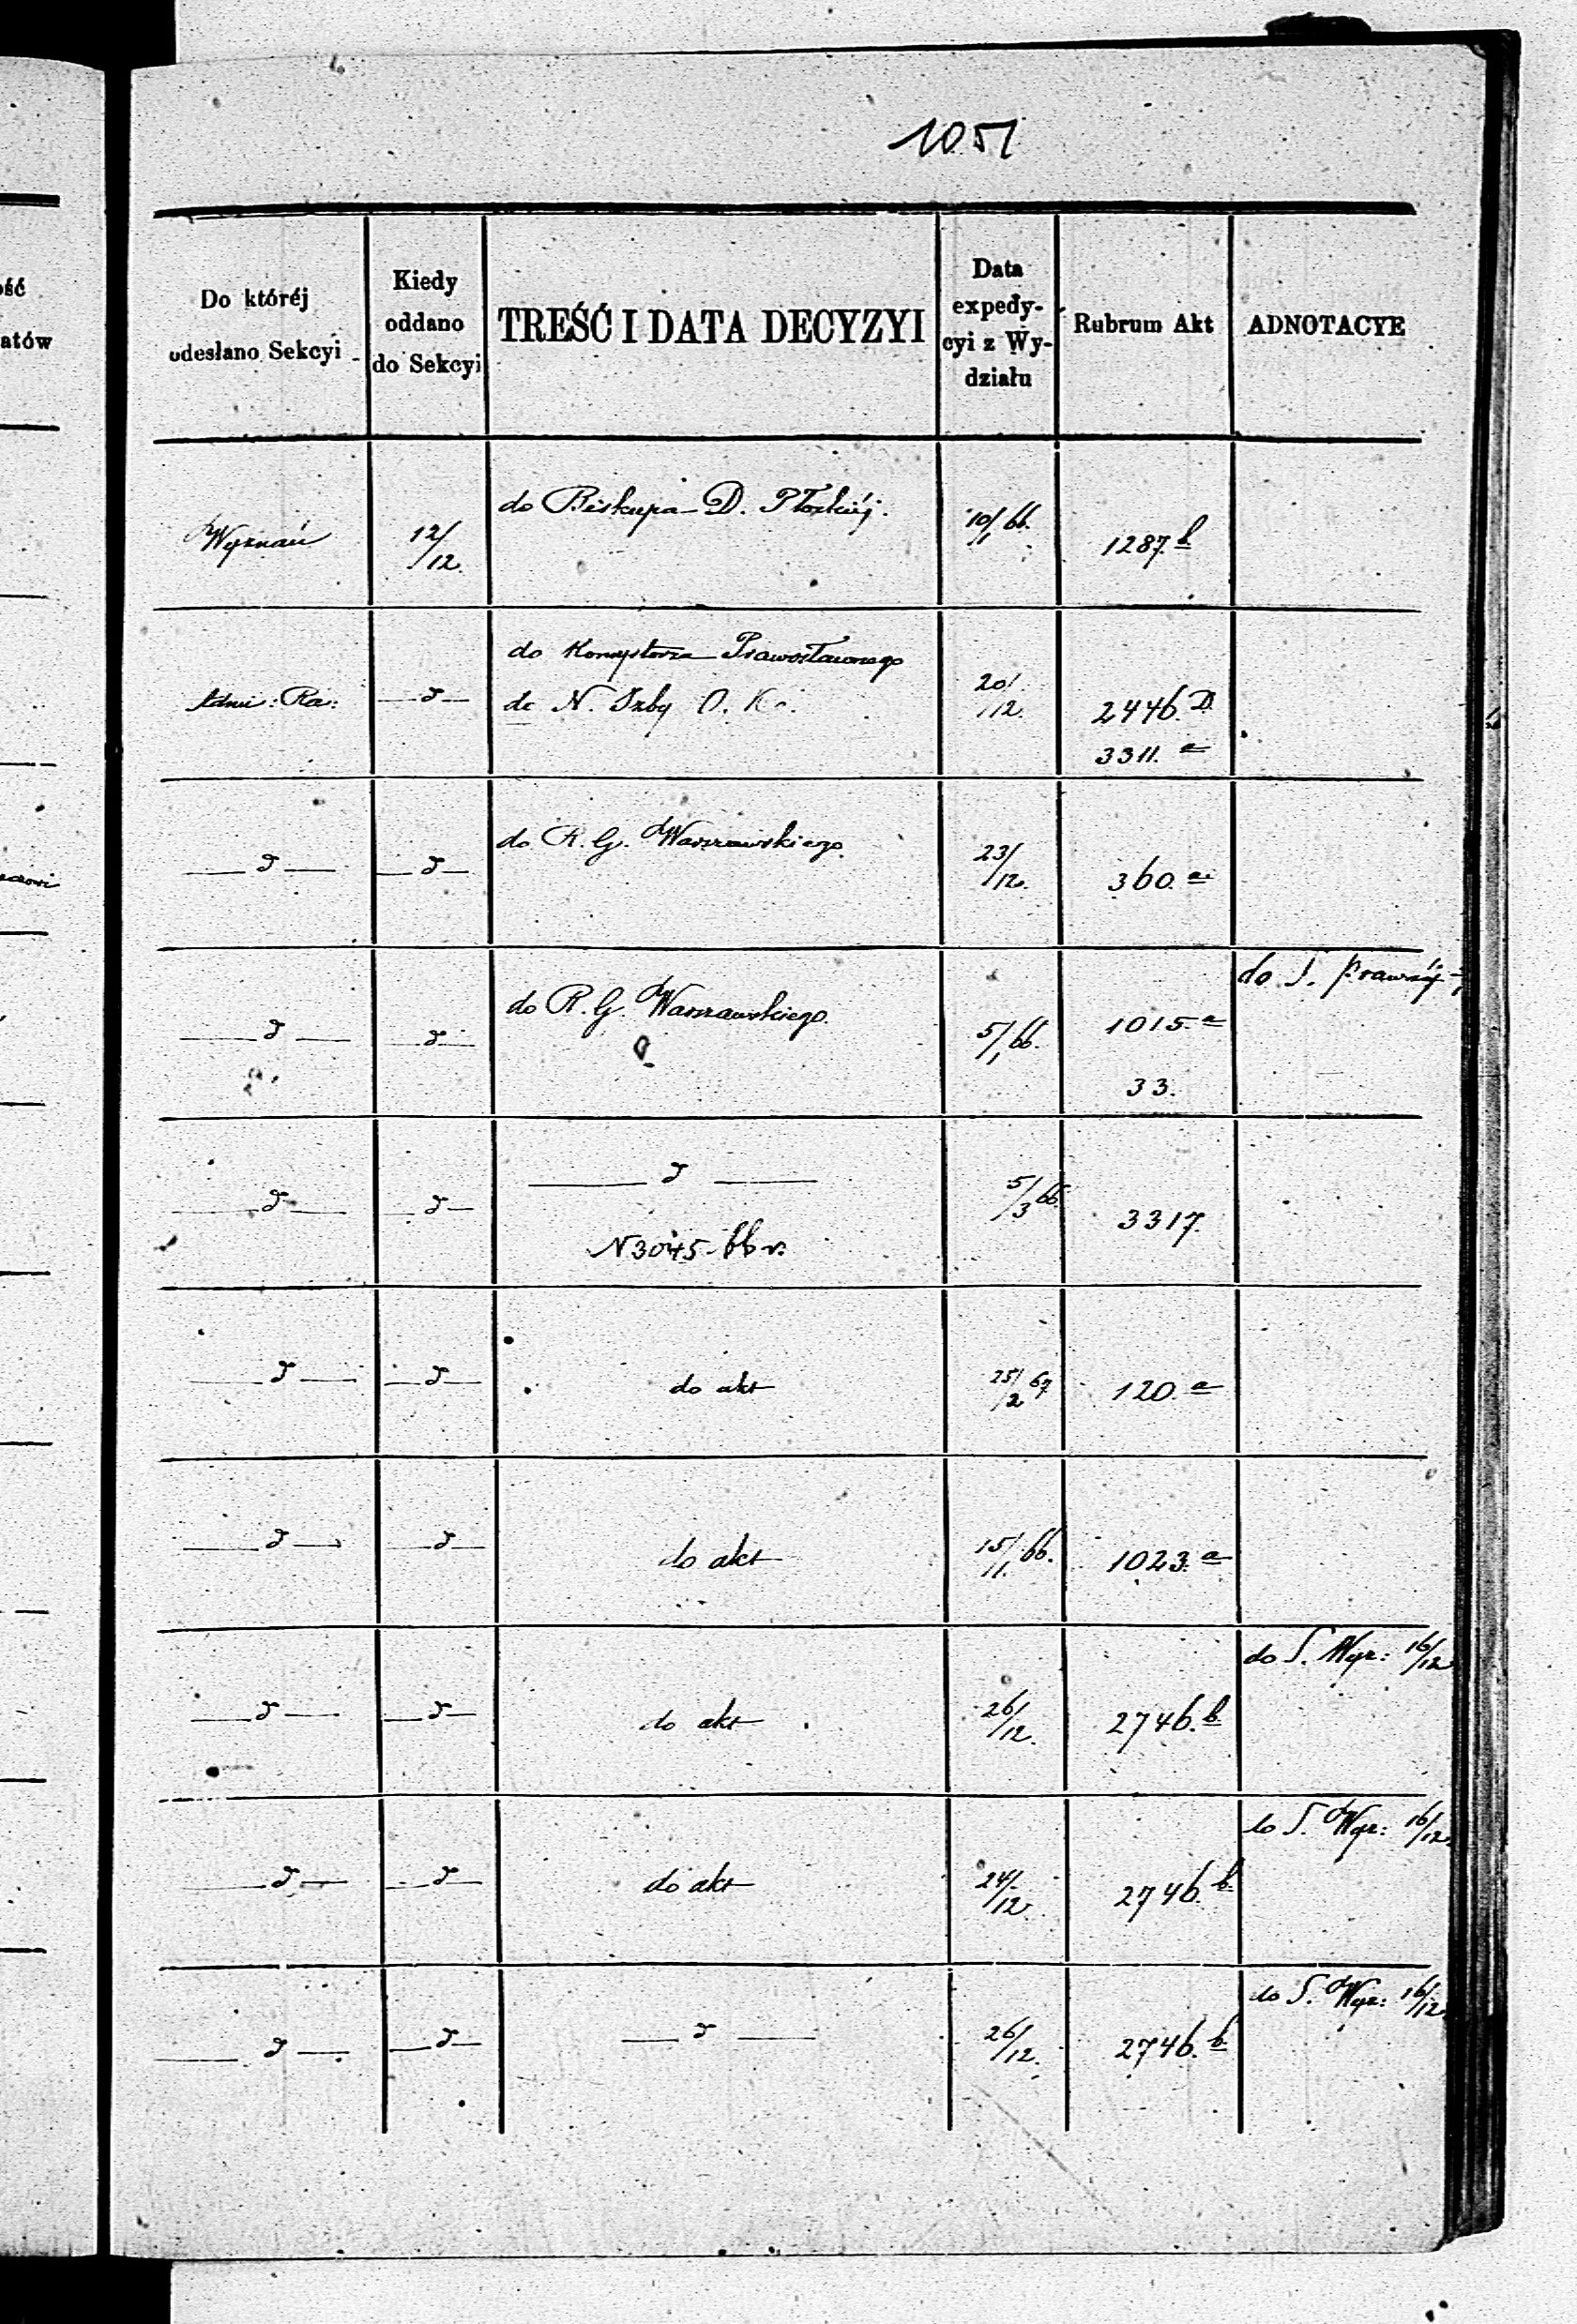 1051
Do któréj
odesłano Sekcyi
Kiedy
oddano
do Sekcyi
TREŚĆ I DATA DECYZYI
Data
expedy-
cyi z Wy-
działu
Rubrum Akt
ADNOTACYE
ość
atów
Wyznań
12/12.
do Biskupa D. Płockiéj.
10/1 66.
1287. b
Admi: Ra:
d
do Konsystorza Prawosławnego
do N. Izby O. K.
20/12.
2446. D.
3311. a
d
d
do R. G. Warszawskiego.
23/12.
360. a
d
d
do R. G. Warszawskiego.
5/1 66.
1015. a
33.
do S. Prawnéj
d
d
d
N 3045-66 r.
5/3 66.
3317.
d
d
do akt
25/2 67
120. a
d
d
do akt
15/11. 66.
1023. a
d
d
do akt
26/12.
2746. b.
do S. Wyz: 16/12
d
d
do akt
24/12.
2746. b.
do S. Wyz: 16/12.
d
d
d
26/12.
2746. b.
do S. Wyz: 16/12.